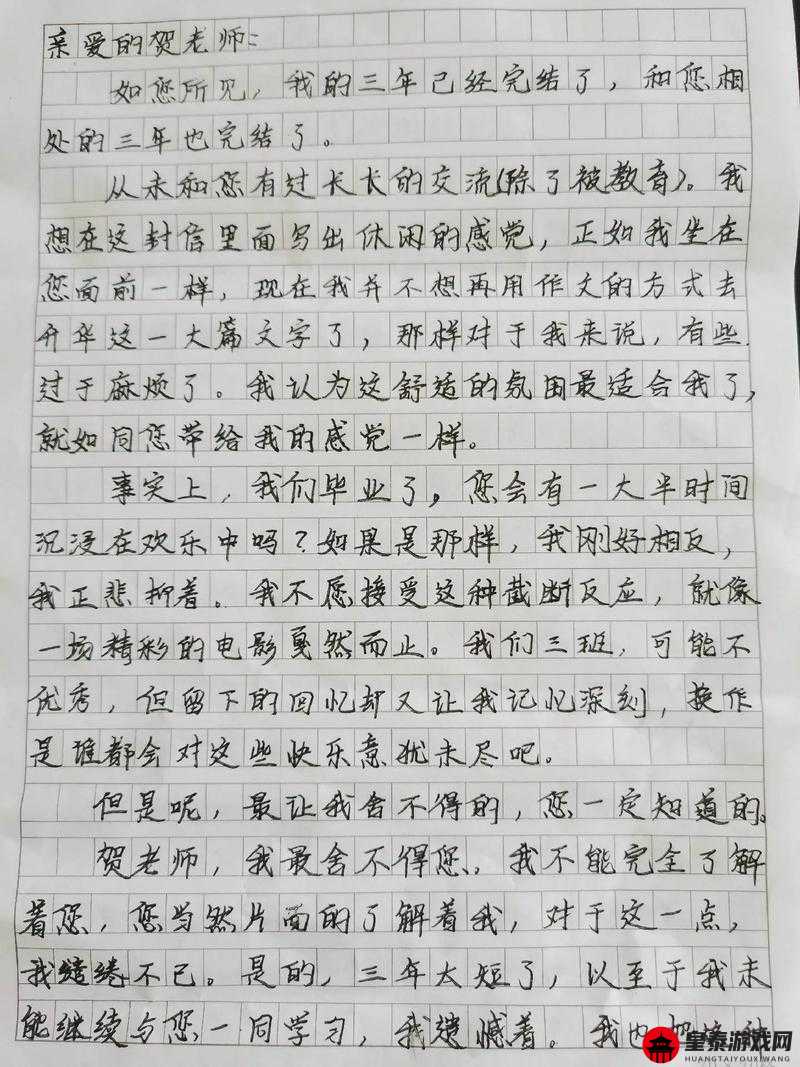 亲爱的贺老师:
如您所见，我的三年已经完结了，和您相
处的三年也完结了。
从未和您有过长长的交流(除了被教育)。我
想在这封信里面写出休闲的感觉，正如我坐在
您面前一样，现在我并不想再用作文的方式去
升华这一大篇文字了，那样对于我来说，有些
过于麻烦了。我认为这舒适的氛围最适合我了，
就如同您带给我的感觉一样。
事实上，我们毕业了，您会有一大半时间
沉浸在欢乐中吗？如果是那样，我刚好相反，
我正悲抑着。我不愿接受这种截断反应，就像
一场精彩的电影戛然而止。我们三班，可能不
优秀，但留下的回忆却又让我记忆深刻，换作
是谁都会对这些快乐意犹未尽吧。
但是呢，最让我舍不得的，您一定知道的。
贺老师，我最舍不得您，我不能完全了解
着您，您当然片面的了解着我，对于这一点，
我缱绻不已。是的，三年太短了，以至于我未
能继续与您一同学习，我遗憾着。我也
皇泰游戏网
HUANGTAIYOUXIWANG